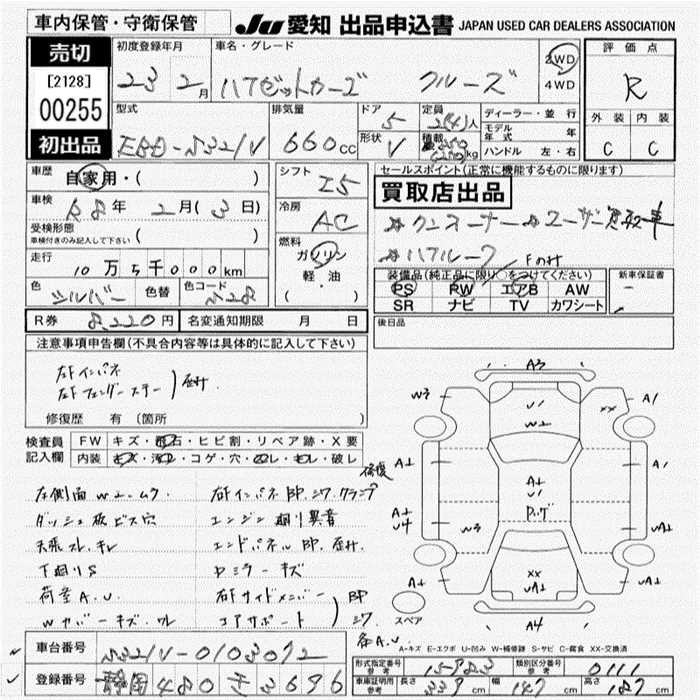 車内保管・守衛保管
JU 愛知 出品申込書 JAPAN USED CAR DEALERS ASSOCIATION
売切
[2128]
00255
初出品
初度登録年月
23 2月
車名・グレード
ハイゼットカーゴ クルーズ
2WD
4WD
評価点
R
外装 内装
C C
型式
EBD-S321V
排気量
660cc
ドア
5
形状
V
定員
2(4)人
積載
350
(250)kg
ディーラー・並行
モデル年式 年
ハンドル 左・右
車歴
自家用・( )
車検
R8年 2月(3日)
受検形態
車検付きのみ記入して下さい ( )
走行
10万5千000km
色
シルバー
色替
色コード
S28
シフト
I5
冷房
AC
燃料
ガソリン
軽油
( )
セールスポイント(正常に機能するものに限ります)
買取店出品
☆ワンオーナー☆ユーザー買取車
☆ハイルーフ Fのみ
装備品(純正品に限り○をつけてください)
PS PW エアB AW
SR ナビ TV カワシート
新車保証書
－
R券 8,220円
名変通知期限 月 日
後日品
注意事項申告欄(不具合内容等は具体的に記入して下さい)
左Fインパネ
左Fフェンダーステー
歪み
修復歴 有 〔箇所
検査員
記入欄
FW キズ・飛石・ヒビ割・リペア跡・X要
内装 キズ・汚レ・コゲ・穴・スレ・モレ・破レ
修復
左側面Wユームク.
ダッシュ板ビス穴
天張スレ.キレ
下廻りS
荷室A.U.
Wカバーキズ.ワレ
右Fインパネ即.シワ.クランプ
エンジン廻り異音
エンドパネル即.歪み.
Dミラーキズ
右Fサイドメンバー
コアサポート
即
シワ
A3
W3
A1
XX
U1
W2
A1
U1
P.ゲ
A1
A1
U4
W3
A1
UA1
A1
UA1
XX
UA1
A4
スペア
各A.U.
A-キズ E-エクボ U-凹み W-補修跡 S-サビ C-腐食 XX-交換済
車台番号
S321V-0103092
登録番号
静岡480き3696
形式指定番号
参考
15983
類別区分番号
参考
0111
車庫証明用
参考
長さ 339cm 幅 147cm 高さ 187cm